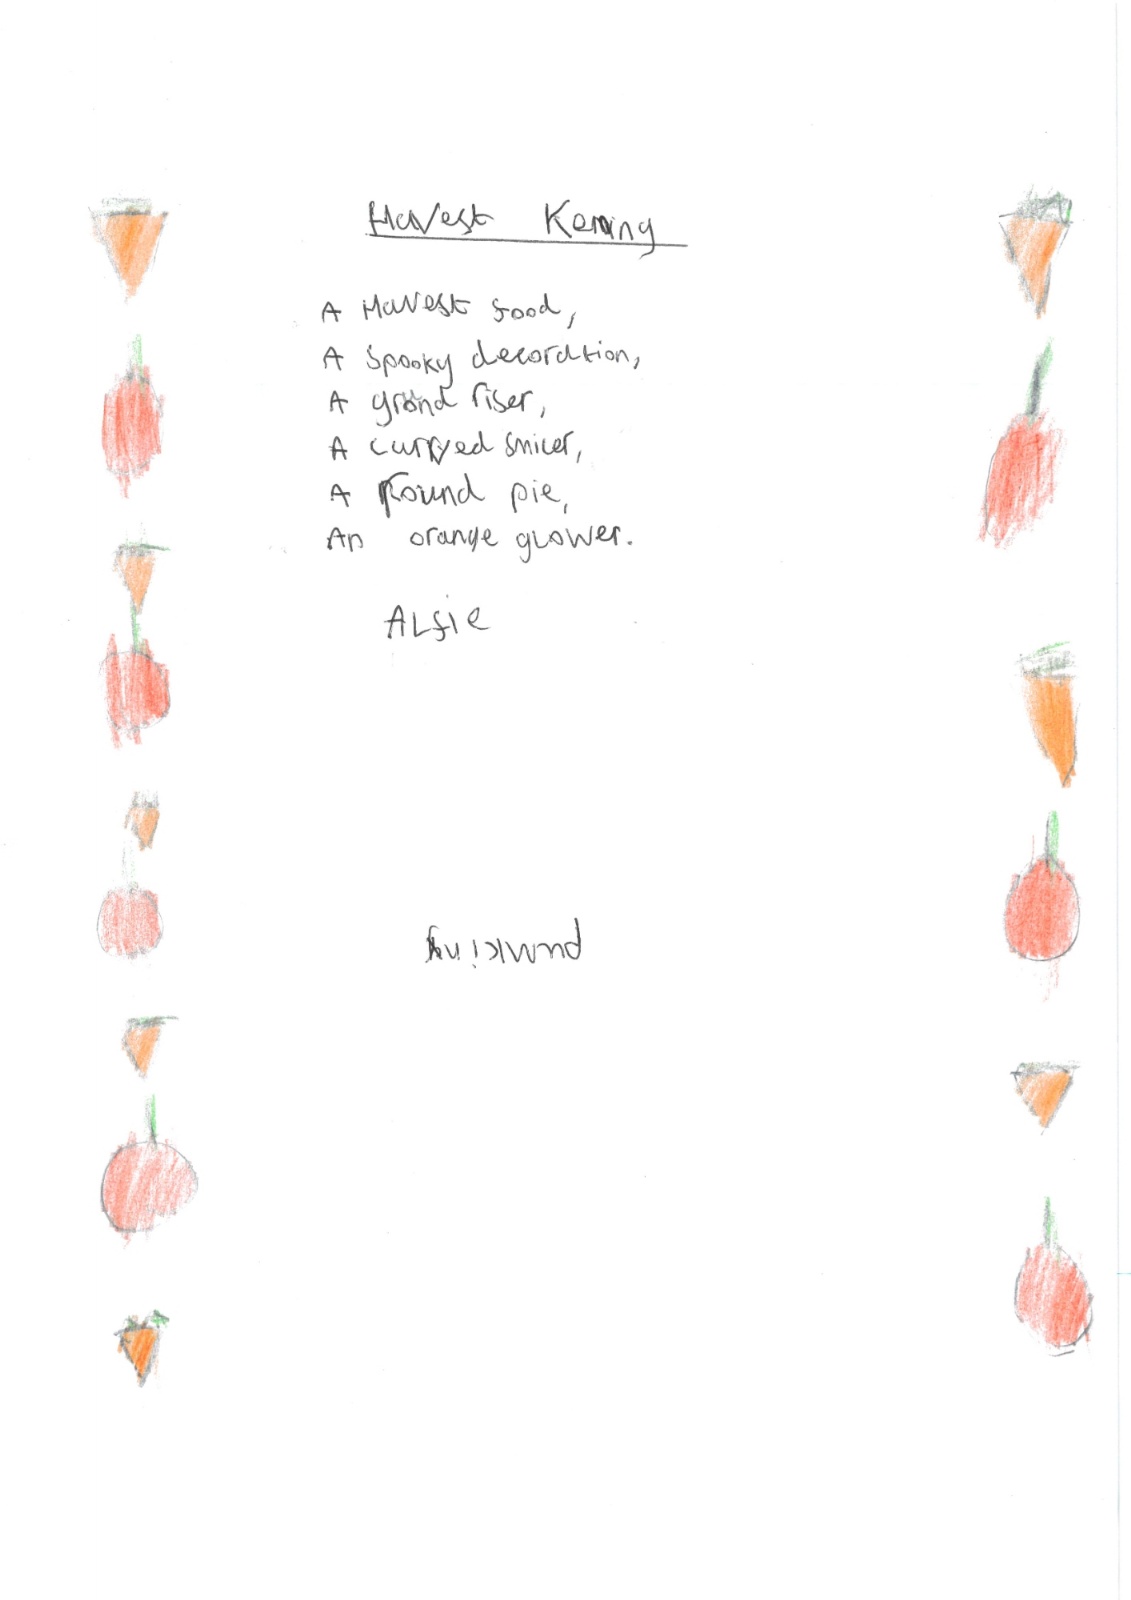 Havest Kenning
A Havest food,
A spooky decoration,
A grond riser,
A curved smiler,
A Round pie,
An orange glower.
Alfie
pumking